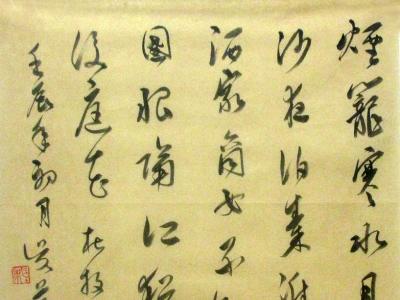 烟籠寒水月
沙夜泊秦淮
酒家商女不知
國恨隔江猶
後庭花 杜牧
壬辰年初月